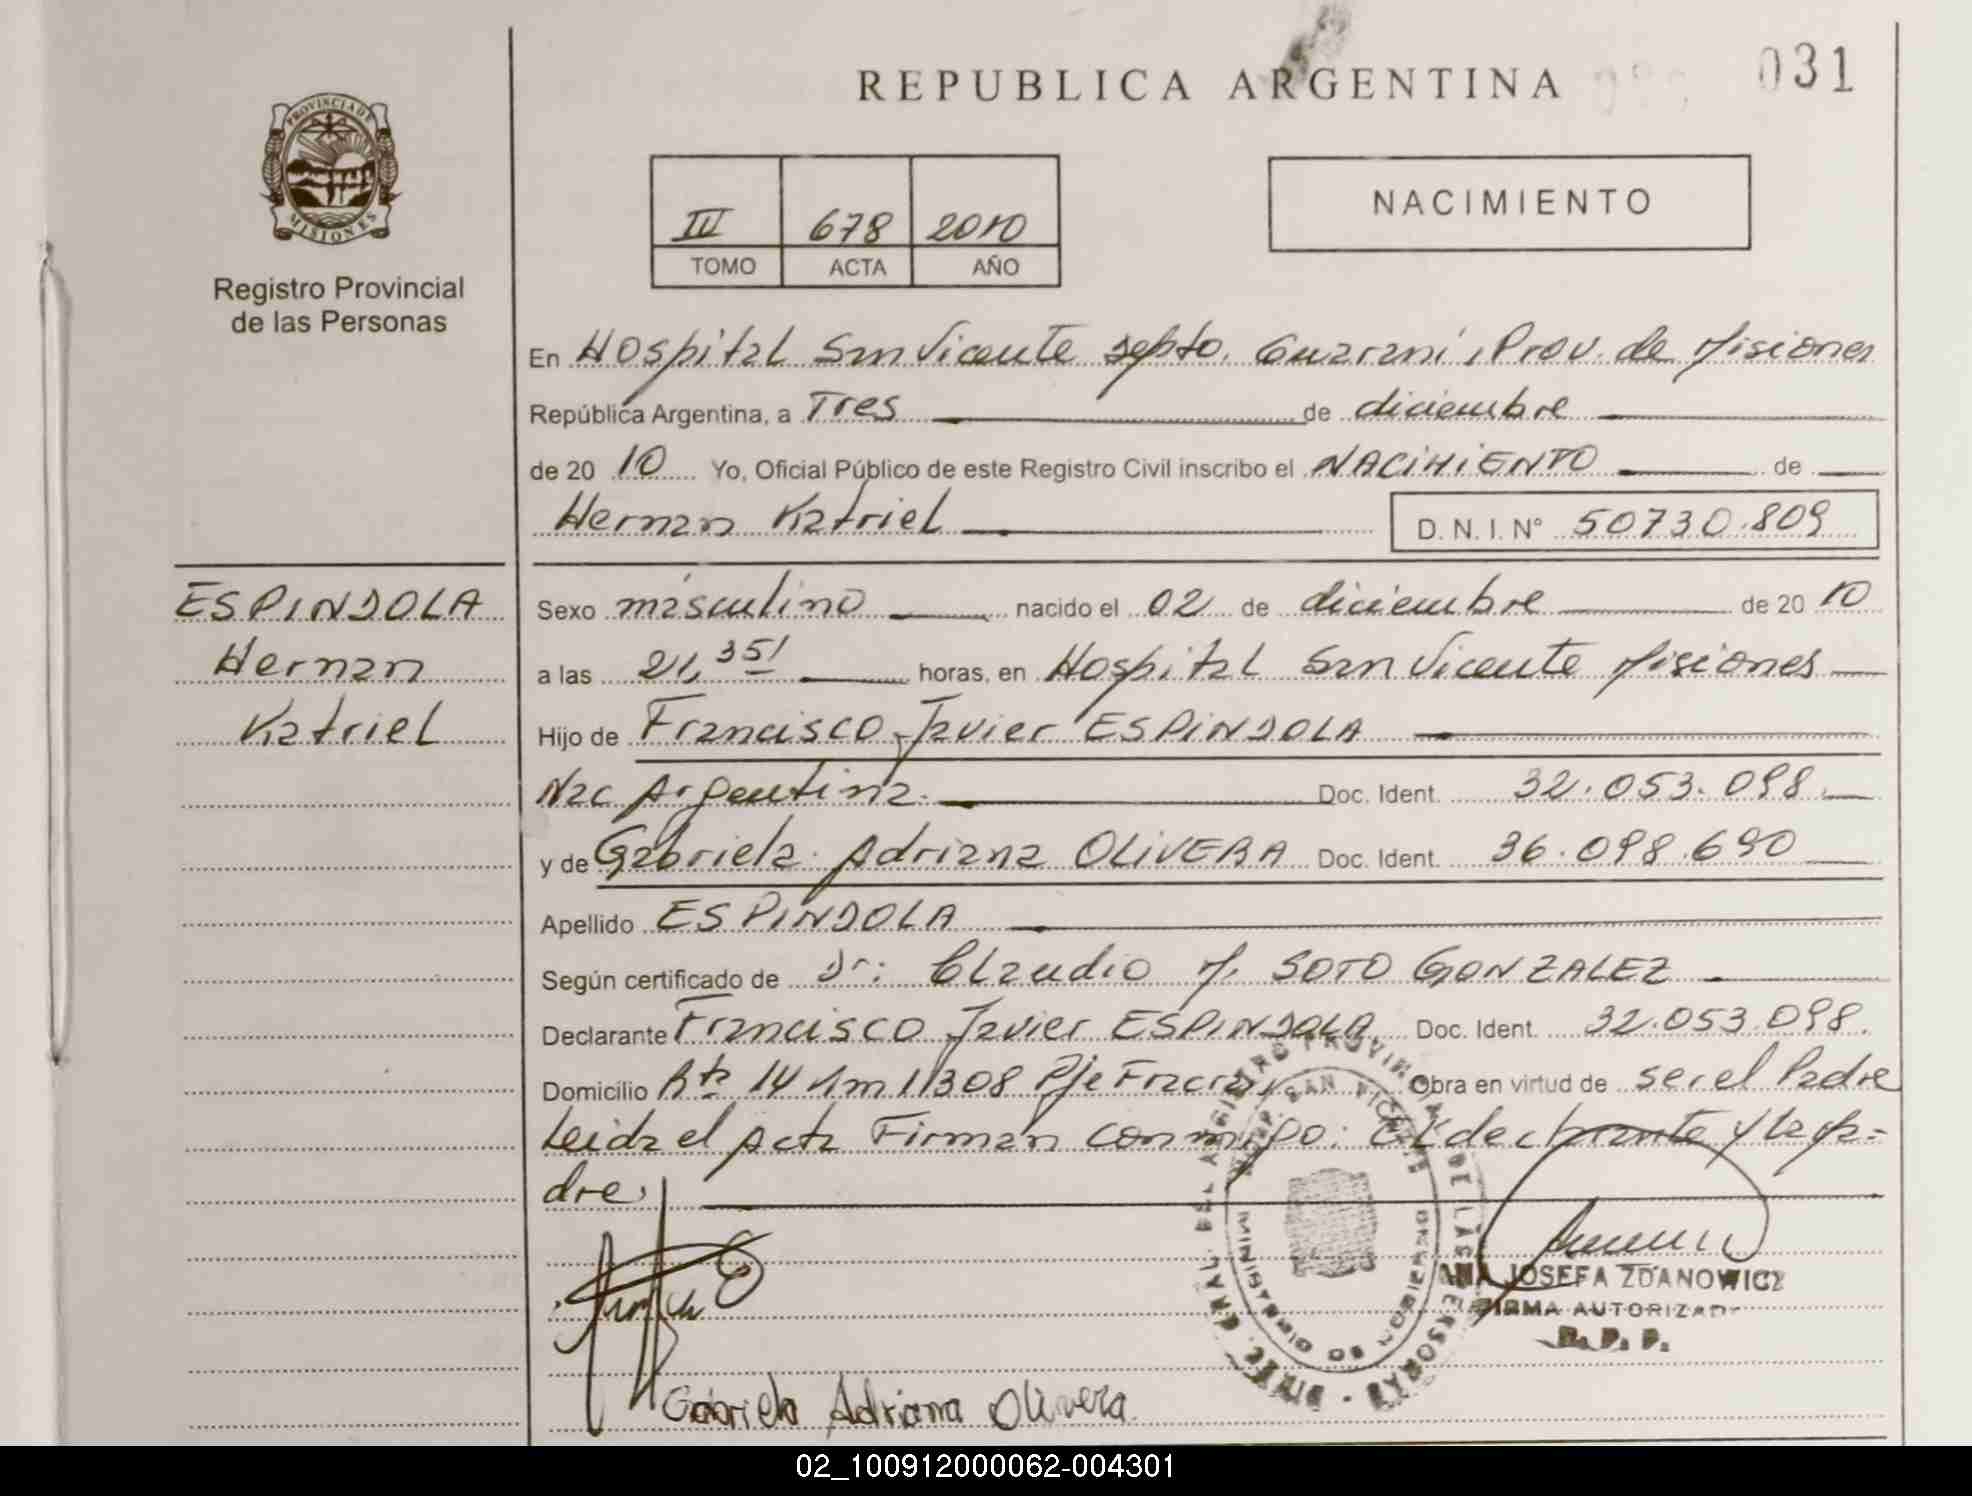 REPUBLICA ARGENTINA
031
PROVINCIA DE
MISIONES
Registro Provincial
de las Personas
III 678 2010
TOMO ACTA AÑO
NACIMIENTO
En Hospital San Vicente Depto. Guaraní, Prov. de Misiones
República Argentina, a Tres de diciembre
de 2010 Yo, Oficial Público de este Registro Civil inscribo el NACIMIENTO de
Hernan Katriel D. N. I. N° 50730.809
ESPINDOLA
Hernan
Katriel
Sexo masculino nacido el 02 de diciembre de 2010
a las 21,35' horas, en Hospital San Vicente Misiones
Hijo de Francisco Javier ESPINDOLA
Nac Argentina. Doc. Ident. 32.053.098.
y de Gabriela Adriana OLIVERA Doc. Ident. 36.098.690
Apellido ESPINDOLA
Según certificado de Dr: Claudio M. SOTO GONZALEZ
Declarante Francisco Javier ESPINDOLA Doc. Ident. 32.053.098.
Domicilio Rta 14 Km 1308 Pje Fracran Obra en virtud de ser el Padre
Leida el Acta Firman conmigo: El declarante y la ma=
dre.
ANA JOSEFA ZDANOWICZ
FIRMA AUTORIZADA
R. P. P.
Gabriela Adriana Olivera
02_100912000062-004301